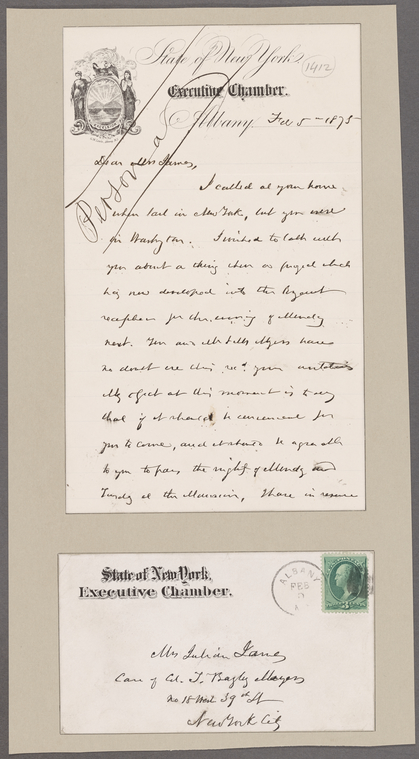 State of New York,
1412
Executive Chamber.
Albany, Feb 5 - 1875
Personal
Dear Mrs James,
I called at your house
when last in New York, but you were
in Washington. I wished to talk with
you about a thing then in project which
has now developed into the
reception for the evening of Monday
next. You and Mr & Mrs Myers have
no doubt ere this rec'd your invitations
My object at this moment is to say
that if it should be convenient for
you to come, and it should be agreeable
to you to pass the night of Monday and
Tuesday at the Mansion, I have in reserve
State of New York,
Executive Chamber.
ALBANY
FEB
3
Mrs Julian James
Care of Col. T. Bagley Meyers
No 18 West 39th St
New York City